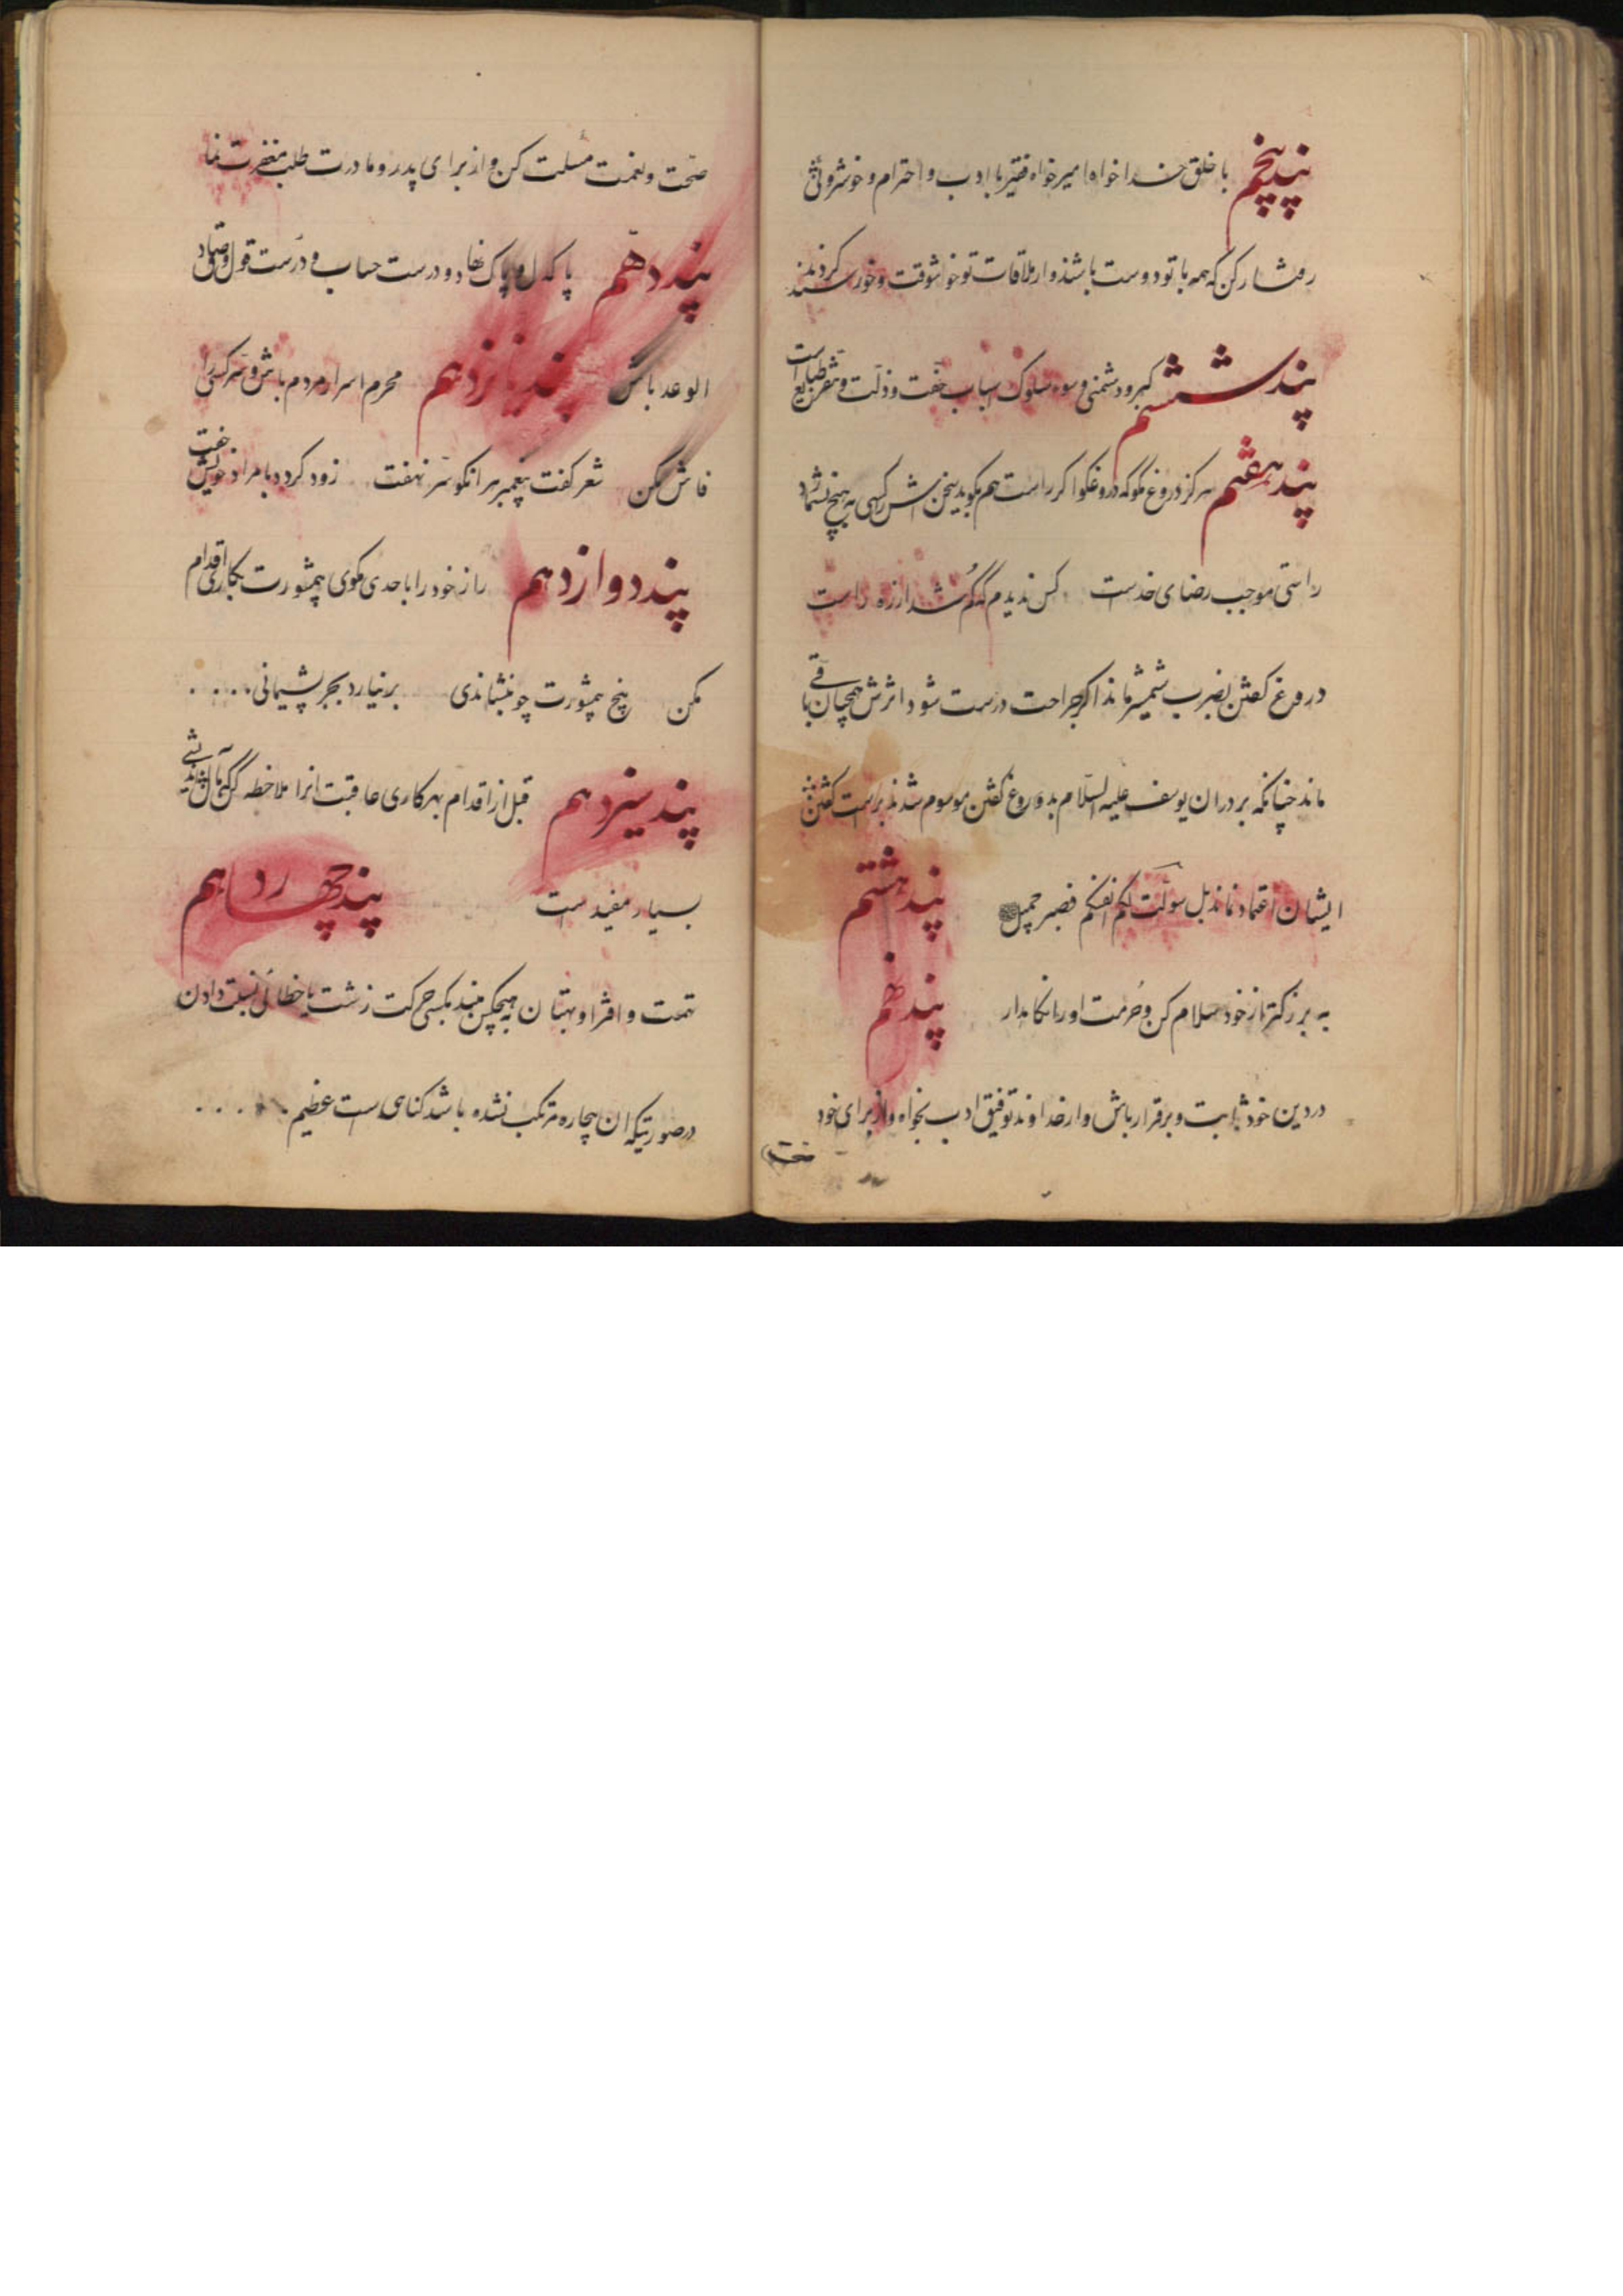 پند پنجم با خلق خدا خواه امیر خواه فقیر با ادب و احترام و خوشروئی
رفتار کن که همه با تو دوست باشند و از ملاقات تو خوشوقت و خورسند گردند
پند ششم کبر و دشمنی و سوء سلوک اسباب خفت و ذلت و تنفر طبایع است
پند هفتم هرگز دروغ مگو که دروغگو اگر راست هم بگوید سخنش را کسی به هیچ نشمارد
راستی موجب رضای خداست کس ندیدم که گم شد از ره راست
دروغ گفتن بضرب شمشیر ماند اگر جراحت درست شود اثرش همچنان باقی
ماند چنانکه برادران یوسف علیه السلام بدروغ گفتن موسوم شدند براست گفتن
ایشان اعتماد نماند بل سولت لکم انفسکم فصبر جمیل پند هشتم
به بزرگتر از خود سلام کن و حرمت او را نگاهدار پند نهم
در دین خود ثابت و برقرار باش و از خداوند توفیق ادب بخواه و از برای خود
صحت
صحت و نعمت مسئلت کن و از برای پدر و مادرت طلب مغفرت نما
پند دهم پاکدل و پاک نهاد و درست حساب و درست قول و صادق
الوعد باش پند یازدهم محرم اسرار مردم باش و سر کسی را
فاش مکن شعر گفت پیغمبر هر آنکو سر نهفت زود گردد با مراد خویش جفت
پند دوازدهم راز خود را باحدی مگوی بیمشورت بکاری اقدام
مکن بیخ بیمشورت چو بنشاندی بر نیارد بجز پشیمانی . . . .
پند سیزدهم قبل از اقدام بهر کاری عاقبت آنرا ملاحظه کن که مآل اندیشی
بسیار مفید است پند چهاردهم
تهمت و افترا و بهتان به هیچکس مبند بکسی حرکت زشت یا خطائی نسبت دادن
در صورتیکه آن بیچاره مرتکب نشده باشد گناهی است عظیم . . . . .